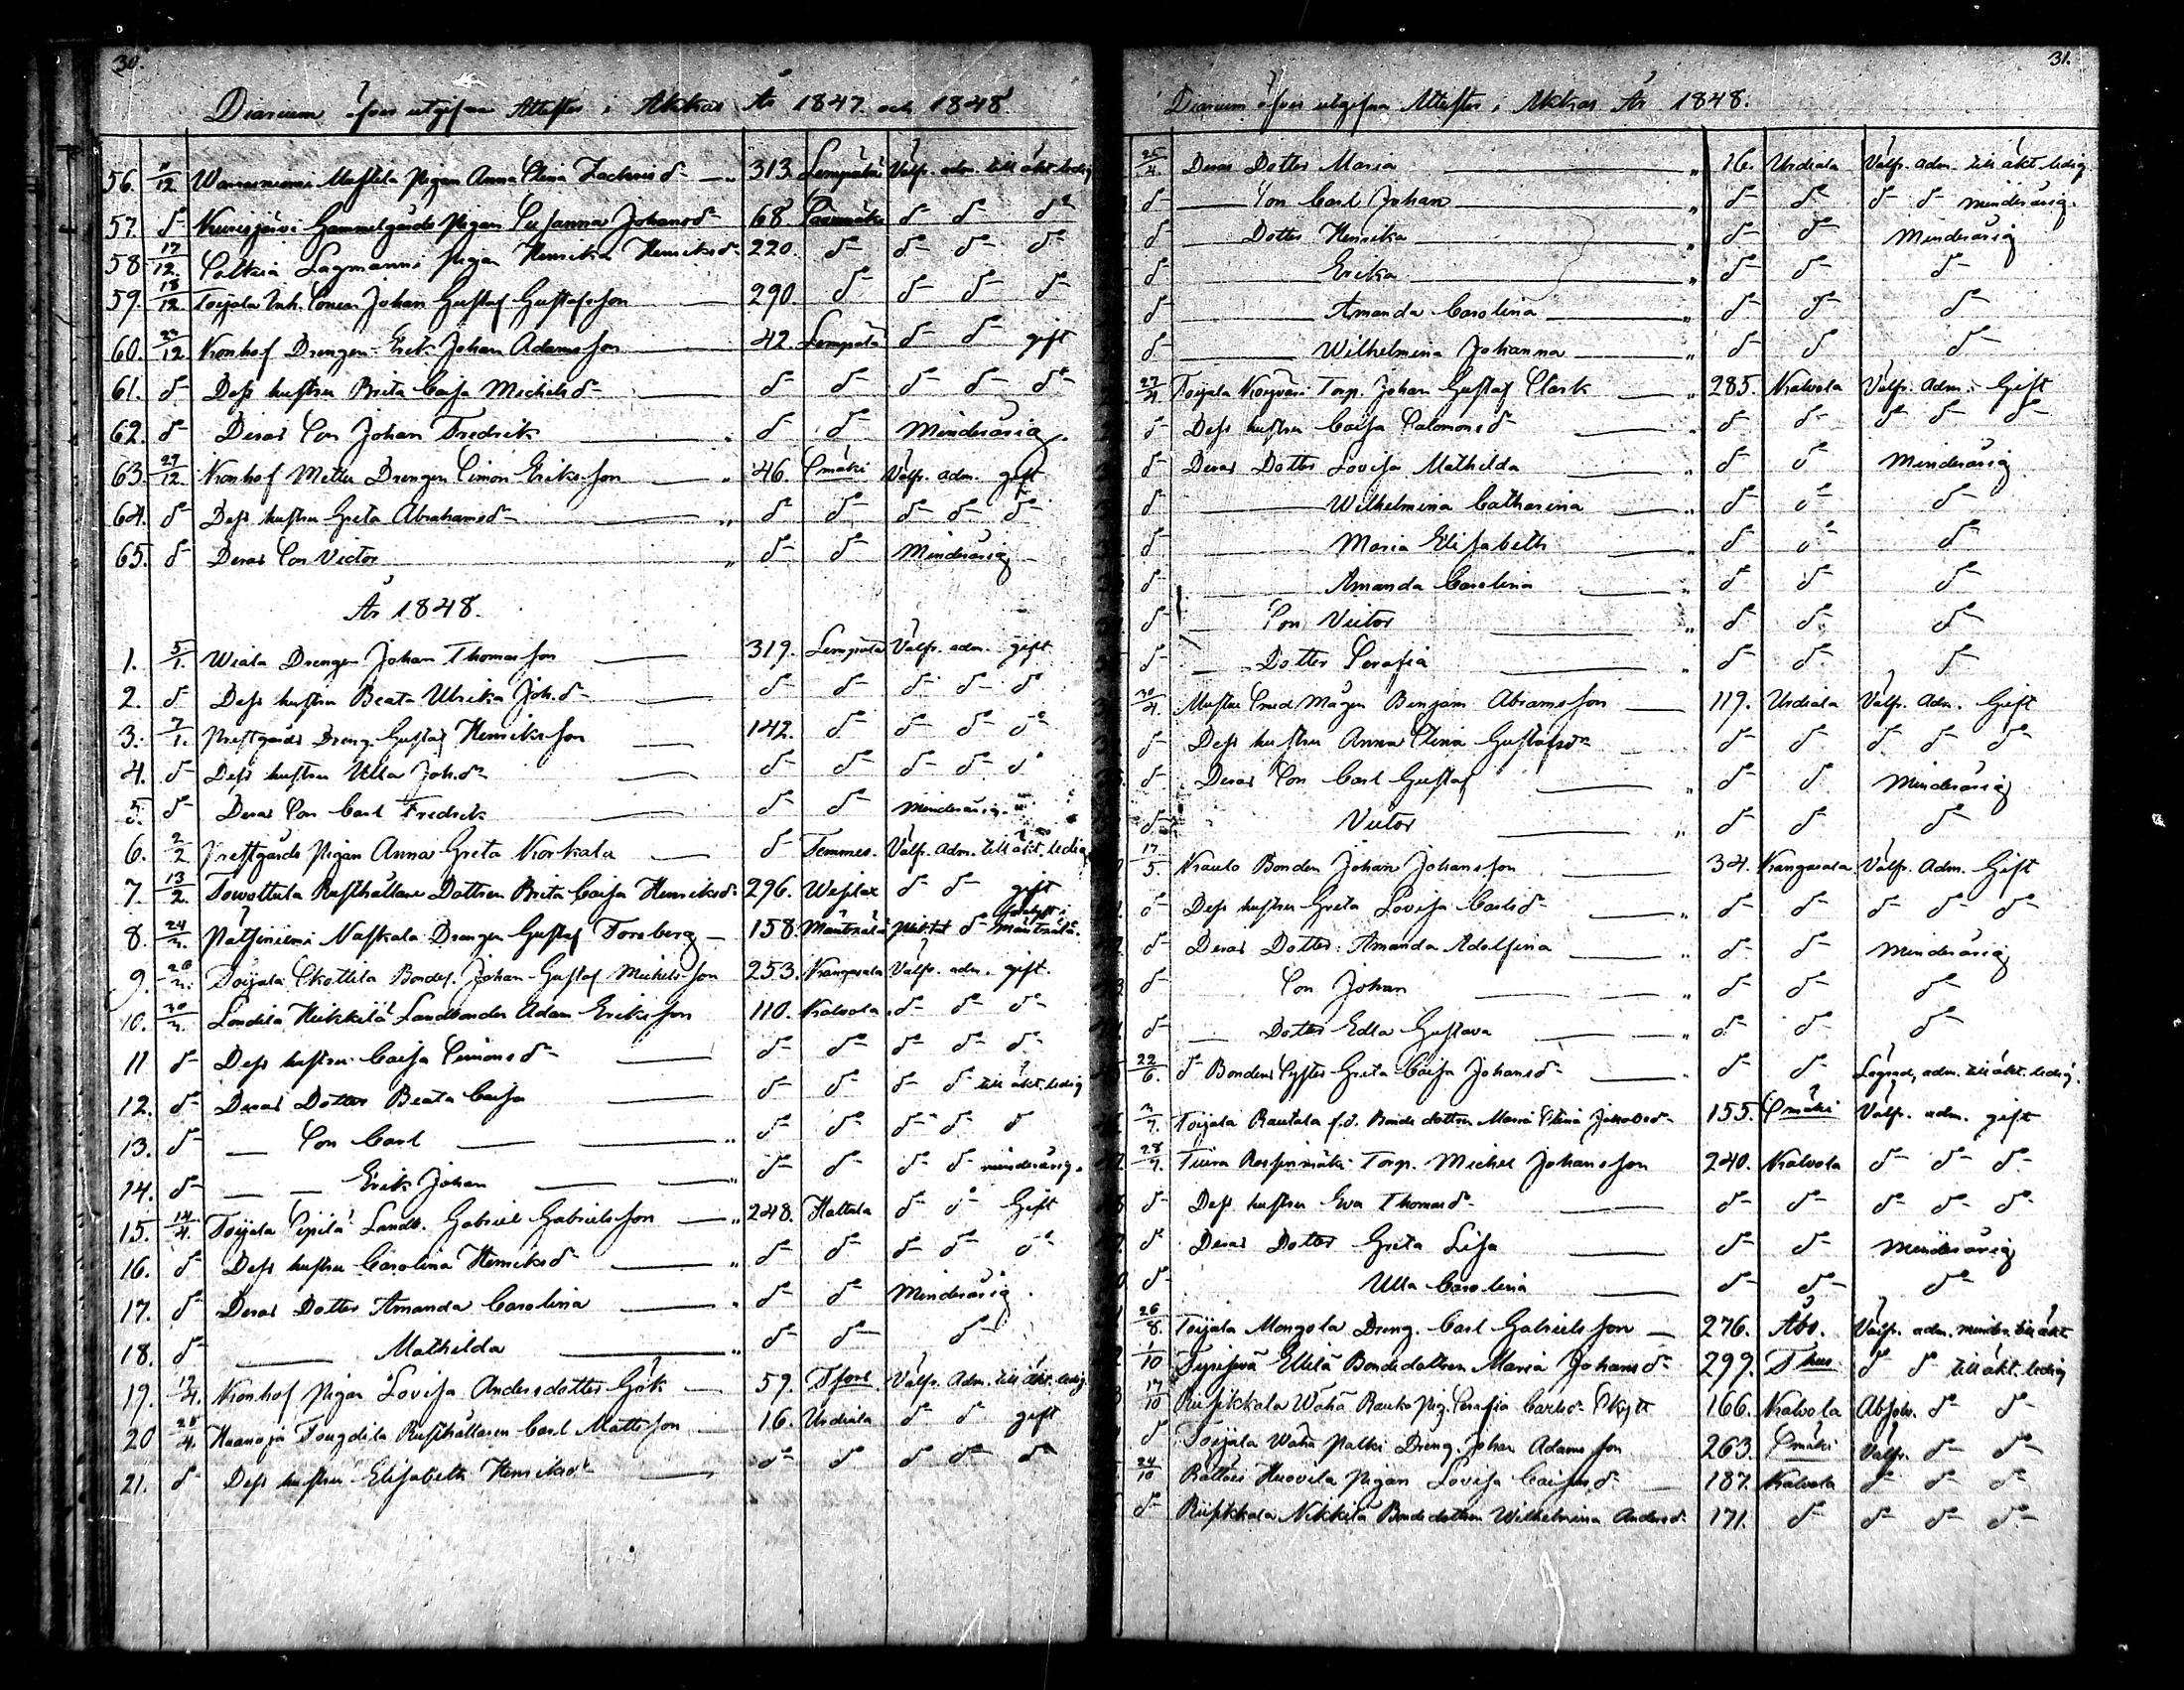 30.
Diarium öfver utgifna Attester i Akkas År 1847. och 1848.
56. 11/12 Warrasniemi Pigan Anna Stina Zachrisd:r 313. Lempälä Välfr. adm. till äkt. ledig
57. d:o Kurisjärvi Gammelgårds Pigan Susanna Johansd:r 68. Saarmäki d:o d:o d:o
58. 17/12. Sotkia Lagmanni Pigan Henrika Henriksd:r 220. d:o d:o d:o d:o
59. 18/12 Toijala Inh. Sonen Johan Gustaf Gustafsson 290 d:o d:o d:o d:o
60. 23/12 Kronhof Drengen Erik Johan Adamsson 42. Lempälä d:o d:o gift
61. d:o Dess hustru Brita Caisa Michelsd:r d:o d:o d:o d:o d:o
62. d:o Deras Son Johan Fredrik d:o d:o Minderårig.
63. 27/12. Kronhof Drengen Simon Eriksson 46. Smäki Välfr. adm. gift
64. d:o Dess hustru Greta Abrahamsd:r d:o d:o d:o d:o d:o
65. d:o Deras Son Victor d:o d:o Minderårig
År 1848.
1. 5/1. Wiala Drengen Johan Thomasson 319. Lempälä Välfr. adm. gift
2. d:o Dess hustru Beata Ulrika Joh.d:r d:o d:o d:o d:o d:o
3. 7/1. Prestgårds Dreng. Gustaf Henriksson 142. d:o d:o d:o d:o
4. d:o Dess hustru Ulla Joh.d:r d:o d:o d:o d:o d:o
5. d:o Deras Son Carl Fredrik d:o d:o Minderårig.
6. 2/2 Prestgårds Pigan Anna Greta Korkala d:o Temmes. Välfr. Adm. till äkt. ledig
7. 13/2. Towottula Rusthållare Dottren Brita Caisa Henriksd:r 296. Wesilax d:o d:o gift
8. 24/3. Patsiniemi Naskala Drengen Gustaf Forsberg 158. Mäntzälä d:o Mäntzälä.
9. 28/3. Toijala Skottila Bondes. Johan Gustaf Michelsson 253. Kangasala Välfr. adm. gift.
10. 30/3. Londila Heikkilä Landbonden Adam Eriksson 110. Kalvola d:o d:o d:o
11 d:o Dess hustru Caisa Simonsd:r d:o d:o d:o d:o d:o
12. d:o Deras Dotter Beata Caisa d:o d:o d:o d:o till äkt. ledig
13. d:o Son Carl d:o d:o d:o d:o d:o
14. d:o Erik Johan d:o d:o d:o d:o minderårig.
15. 14/4. Toijala Sipilä Landb. Gabriel Gabrielsson 248. Hattula d:o d:o Gift
16. d:o Dess hustru Carolina Henriksd:r d:o d:o d:o d:o d:o
17. d:o Deras Dotter Amanda Carolina d:o d:o Minderårig.
18. d:o Mathilda d:o d:o d:o
19. 17/4. Kronhof Pigan Lovisa Andersdotter Gök 59. Tfors. Välfr. Adm. till äkt. ledig.
20 25/4. Haanoja Tougdila Rusthållaren Carl Mattsson 16. Urdiala d:o d:o gift
21. d:o Dess hustru Elisabeth Henriksd:r d:o d:o d:o d:o d:o
31.
Diarium öfver utgifna Attester i Akkas År 1848.
25/4 Deras Dotter Maria 16. Urdiala Välfr. adm. till äkt. ledig
d:o Son Carl Johan d:o d:o d:o d:o minderårig.
d:o Dotter Henrika d:o d:o Minderårig
d:o Erika d:o d:o d:o
d:o Amanda Carolina d:o d:o d:o
d:o Wilhelmina Johanna d:o d:o d:o
27/4 Toijala Torp. Johan Gustaf Clark 285. Kalvola Välfr. Adm. Gift
d:o Dess hustru Caisa Salomonsd:r d:o d:o d:o d:o d:o
d:o Deras Dotter Lovisa Mathilda d:o d:o Minderårig
d:o Wilhelmina Catharina d:o d:o d:o
d:o Maria Elisabeth d:o d:o d:o
d:o Amanda Carolina d:o d:o d:o
d:o Son Victor d:o d:o d:o
d:o Dotter Serafia d:o d:o d:o
30/4 Smed Mågen Benjam Abramsson 119. Urdiala Välfr. Adm. Gift
d:o Dess hustru Anna Stina Gustafsd:r d:o d:o d:o d:o d:o
d:o Deras Son Carl Gustaf d:o d:o Minderårig
d:o Victor d:o d:o d:o
17/5 Kaulo Bonden Johan Johansson 34. Kangasala Välfr. Adm. Gift
d:o Dess hustru Greta Lovisa Carlsd:r d:o d:o d:o d:o d:o
d:o Deras Dotter Amanda Adolfina d:o d:o Minderårig
d:o Son Johan d:o d:o d:o
d:o Dotter Edla Gustava d:o d:o d:o
22/6. d:o Bondens Syster Greta Caisa Johansd:r d:o d:o adm. till äkt. ledig.
3/7. Toijala Rautala f.d. Bonde dottren Maria Stina Jakobsd:r 155. Smäki Välfr. adm. gift
28/7. Tiura Torp. Michel Johansson 240. Kalvola d:o d:o d:o
d:o Dess hustru Eva Thomasd:r d:o d:o d:o d:o d:o
d:o Deras Dotter Greta Lisa d:o d:o Minderårig
d:o Ulla Carolina d:o d:o d:o
26/8. Toijala Mongola Dreng. Carl Gabrielsson 276. Åbo. Välfr. adm. till äkt
1/10 Ellilä Bondedottren Maria Johansd:r 299. Thus d:o d:o till äkt. ledig
17/10 Riisikkala Wähä Rauko Pig. Serafia Carlsd:r Skytt 166. Kalvola Absolv. d:o d:o
d:o Toijala Wähä Palki Dreng. Johan Adamsson 263. Smäki Välfr. d:o d:o
24/10 Rättöis Huovila Pigan Lovisa Caisasd:r 187. Kalvola d:o d:o d:o
d:o Riisikkala Nikkilä Bondedottren Wilhelmina Andersd:r 171. d:o d:o d:o d:o